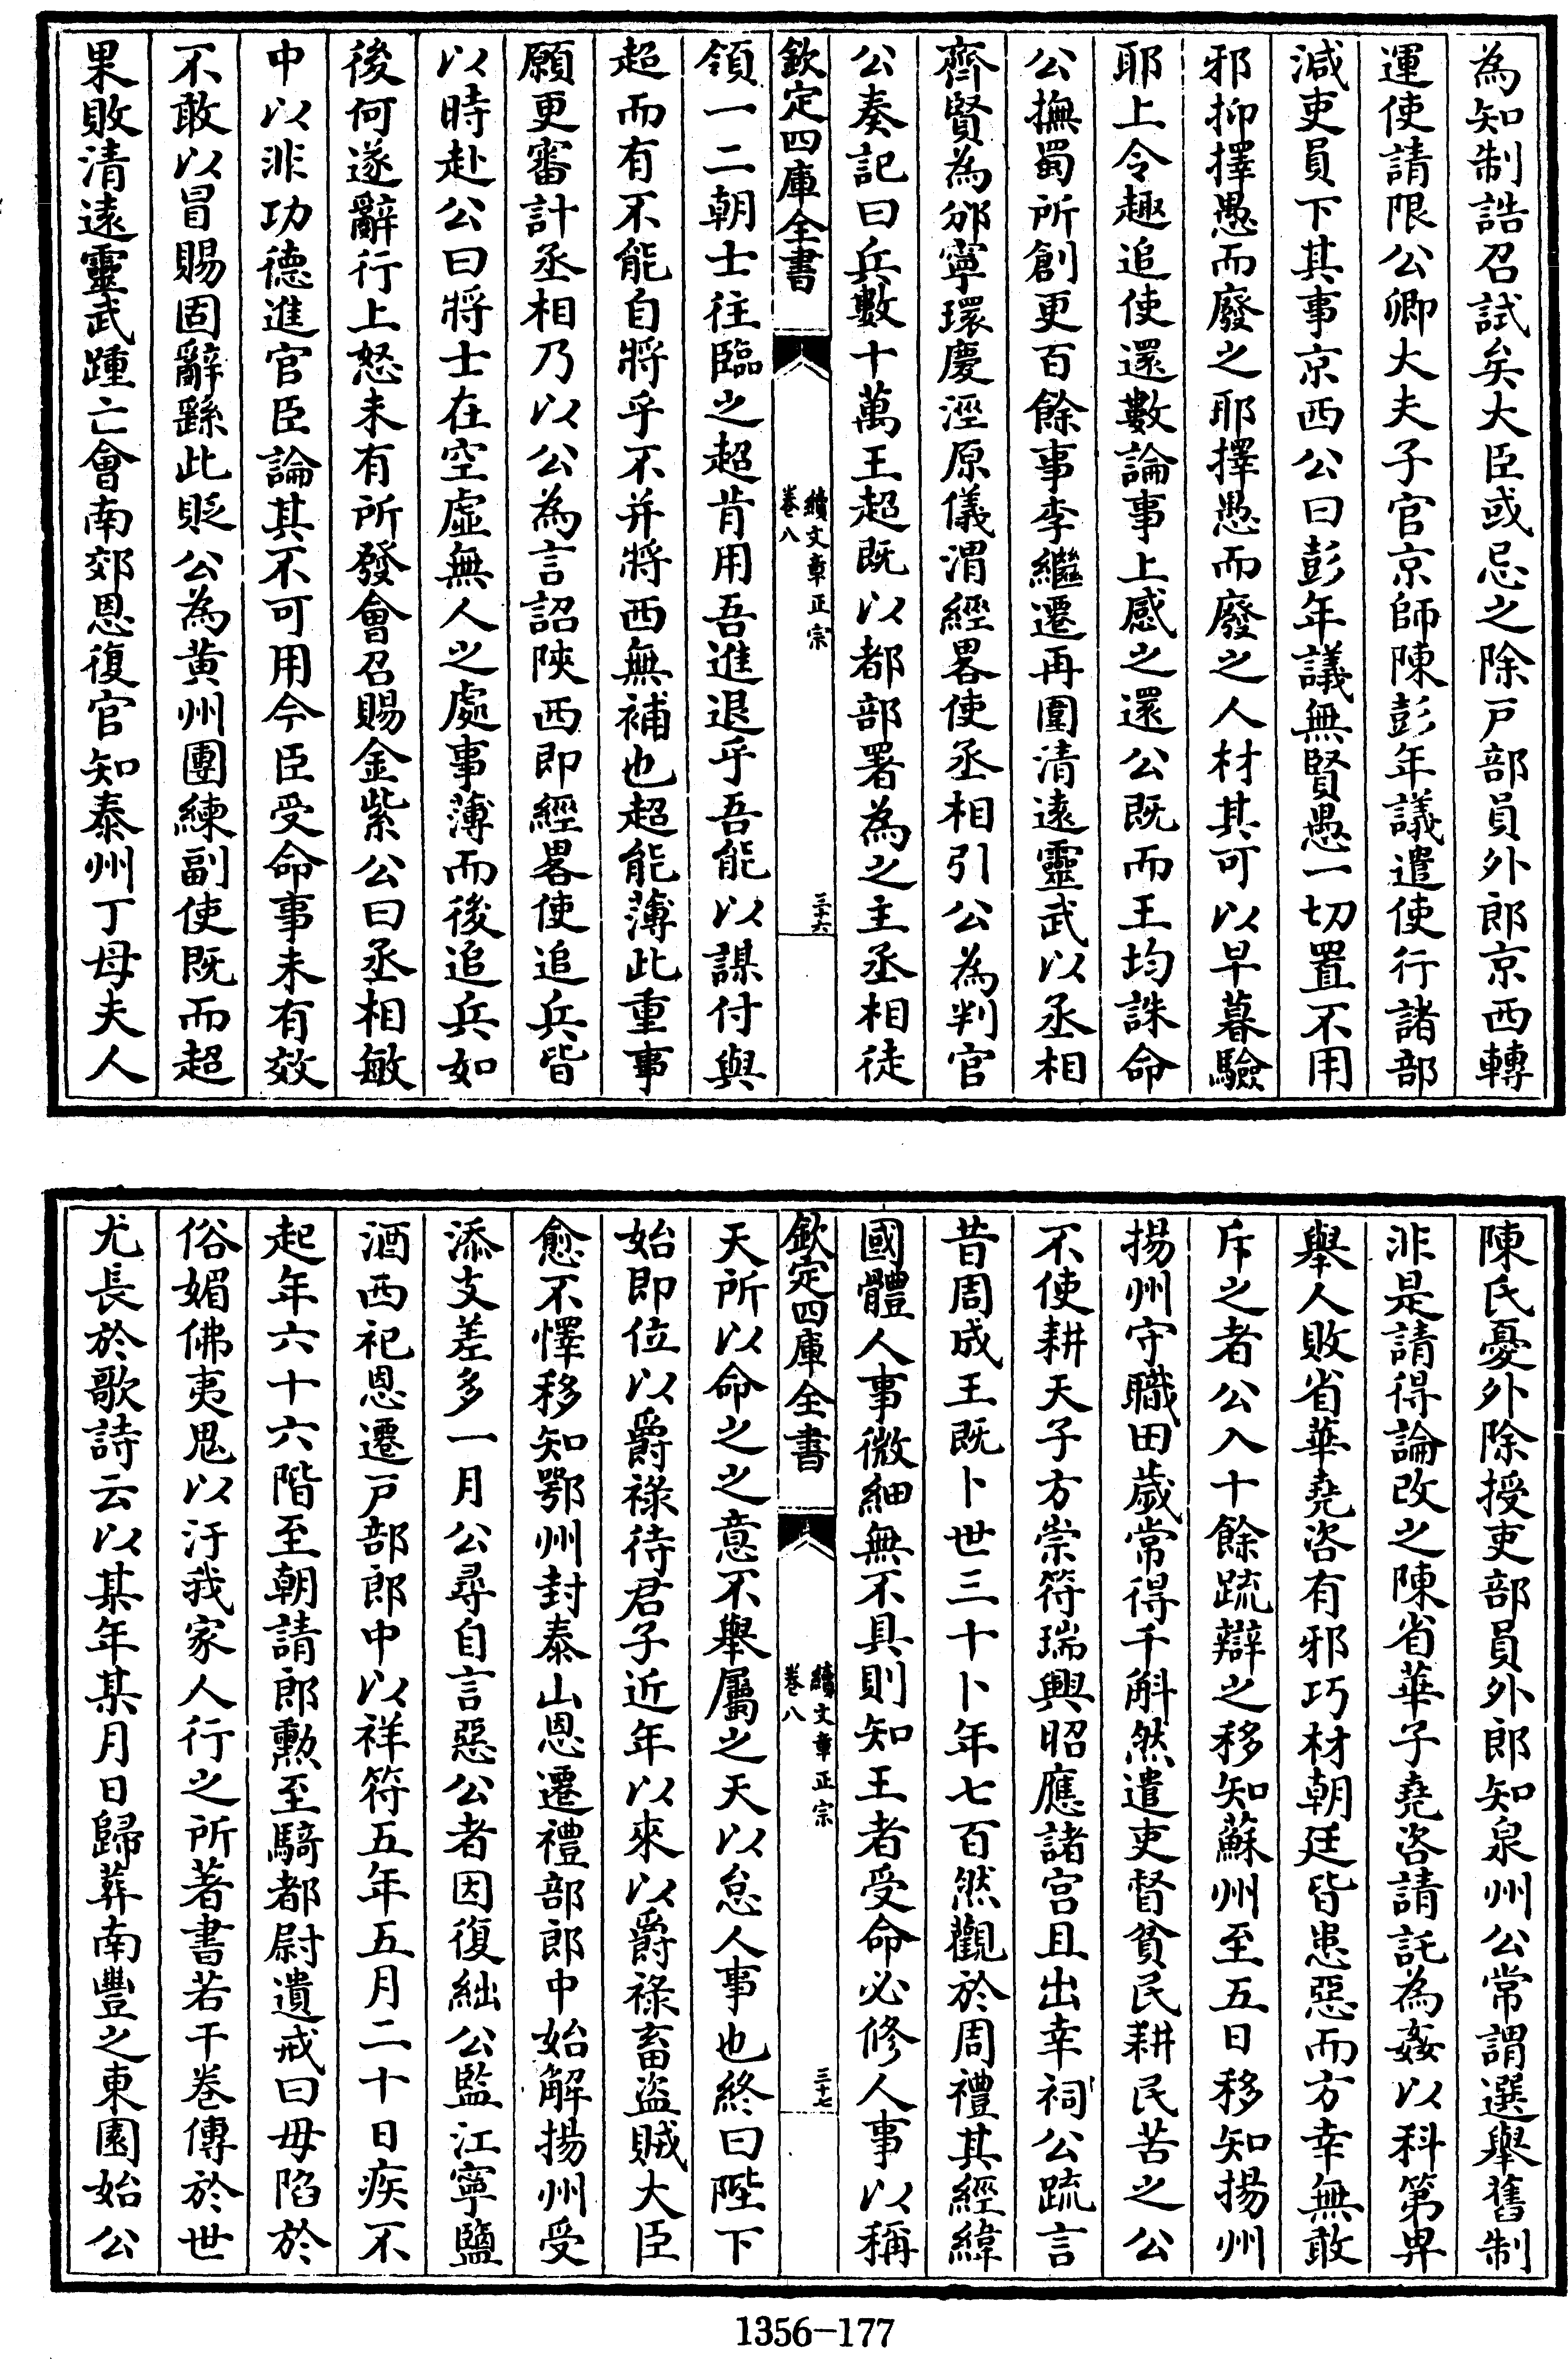 為知制誥召試矣大臣或忌之除戸部員外郎京西轉
運使請限公卿大夫子官京師陳彭年議遣使行諸部
減吏員下其事京西公曰彭年議無賢愚一切置不用
邪抑擇愚而廢之耶擇愚而廢之人材其可以早暮驗
耶上令趣追使還數論事上感之還公既而王均誅命
公撫蜀所創更百餘事李繼遷再圍清逺靈武以丞相
齊賢為邠寧環慶涇原儀渭經畧使丞相引公為判官
公奏記曰兵數十萬王超既以都部署為之主丞相徒
欽定四庫全書
續文章正宗
卷八
三十六
領一二朝士往臨之超肯用吾進退乎吾能以謀付與
超而有不能自將乎不并將西無補也超能薄此重事
願更審計丞相乃以公為言詔陜西即經畧使追兵皆
以時赴公曰將士在空虛無人之處事薄而後追兵如
後何遂辭行上怒未有所發會召賜金紫公曰丞相敏
中以非功德進官臣論其不可用今臣受命事未有效
不敢以冒賜固辭繇此貶公為黄州團練副使既而超
果敗清逺靈武踵亡會南郊恩復官知泰州丁母夫人
陳氏憂外除授吏部員外郎知泉州公常謂選舉舊制
非是請得論改之陳省華子堯咨請託為姦以科第畀
舉人敗省華堯咨有邪巧材朝廷皆患惡而方幸無敢
斥之者公入十餘疏辯之移知蘇州至五日移知揚州
揚州守職田歲常得千斛然遣吏督貧民耕民苦之公
不使耕天子方崇符瑞興昭應諸宫且出幸祠公疏言
昔周成王既卜世三十卜年七百然觀於周禮其經緯
國體人事微細無不具則知王者受命必修人事以稱
欽定四庫全書
續文章正宗
卷八
三十七
天所以命之之意不舉屬之天以怠人事也終曰陛下
始即位以爵祿待君子近年以來以爵祿畜盜賊大臣
愈不懌移知鄂州封泰山恩遷禮部郎中始解揚州受
添支差多一月公尋自言惡公者因復絀公監江寧鹽
酒西祀恩遷戸部郎中以祥符五年五月二十日疾不
起年六十六階至朝請郎勲至騎都尉遺戒曰毋陷於
俗媚佛夷鬼以汙我家人行之所著書若干卷傳於世
尤長於歌詩云以某年某月日歸葬南豐之東園始公
1356-177